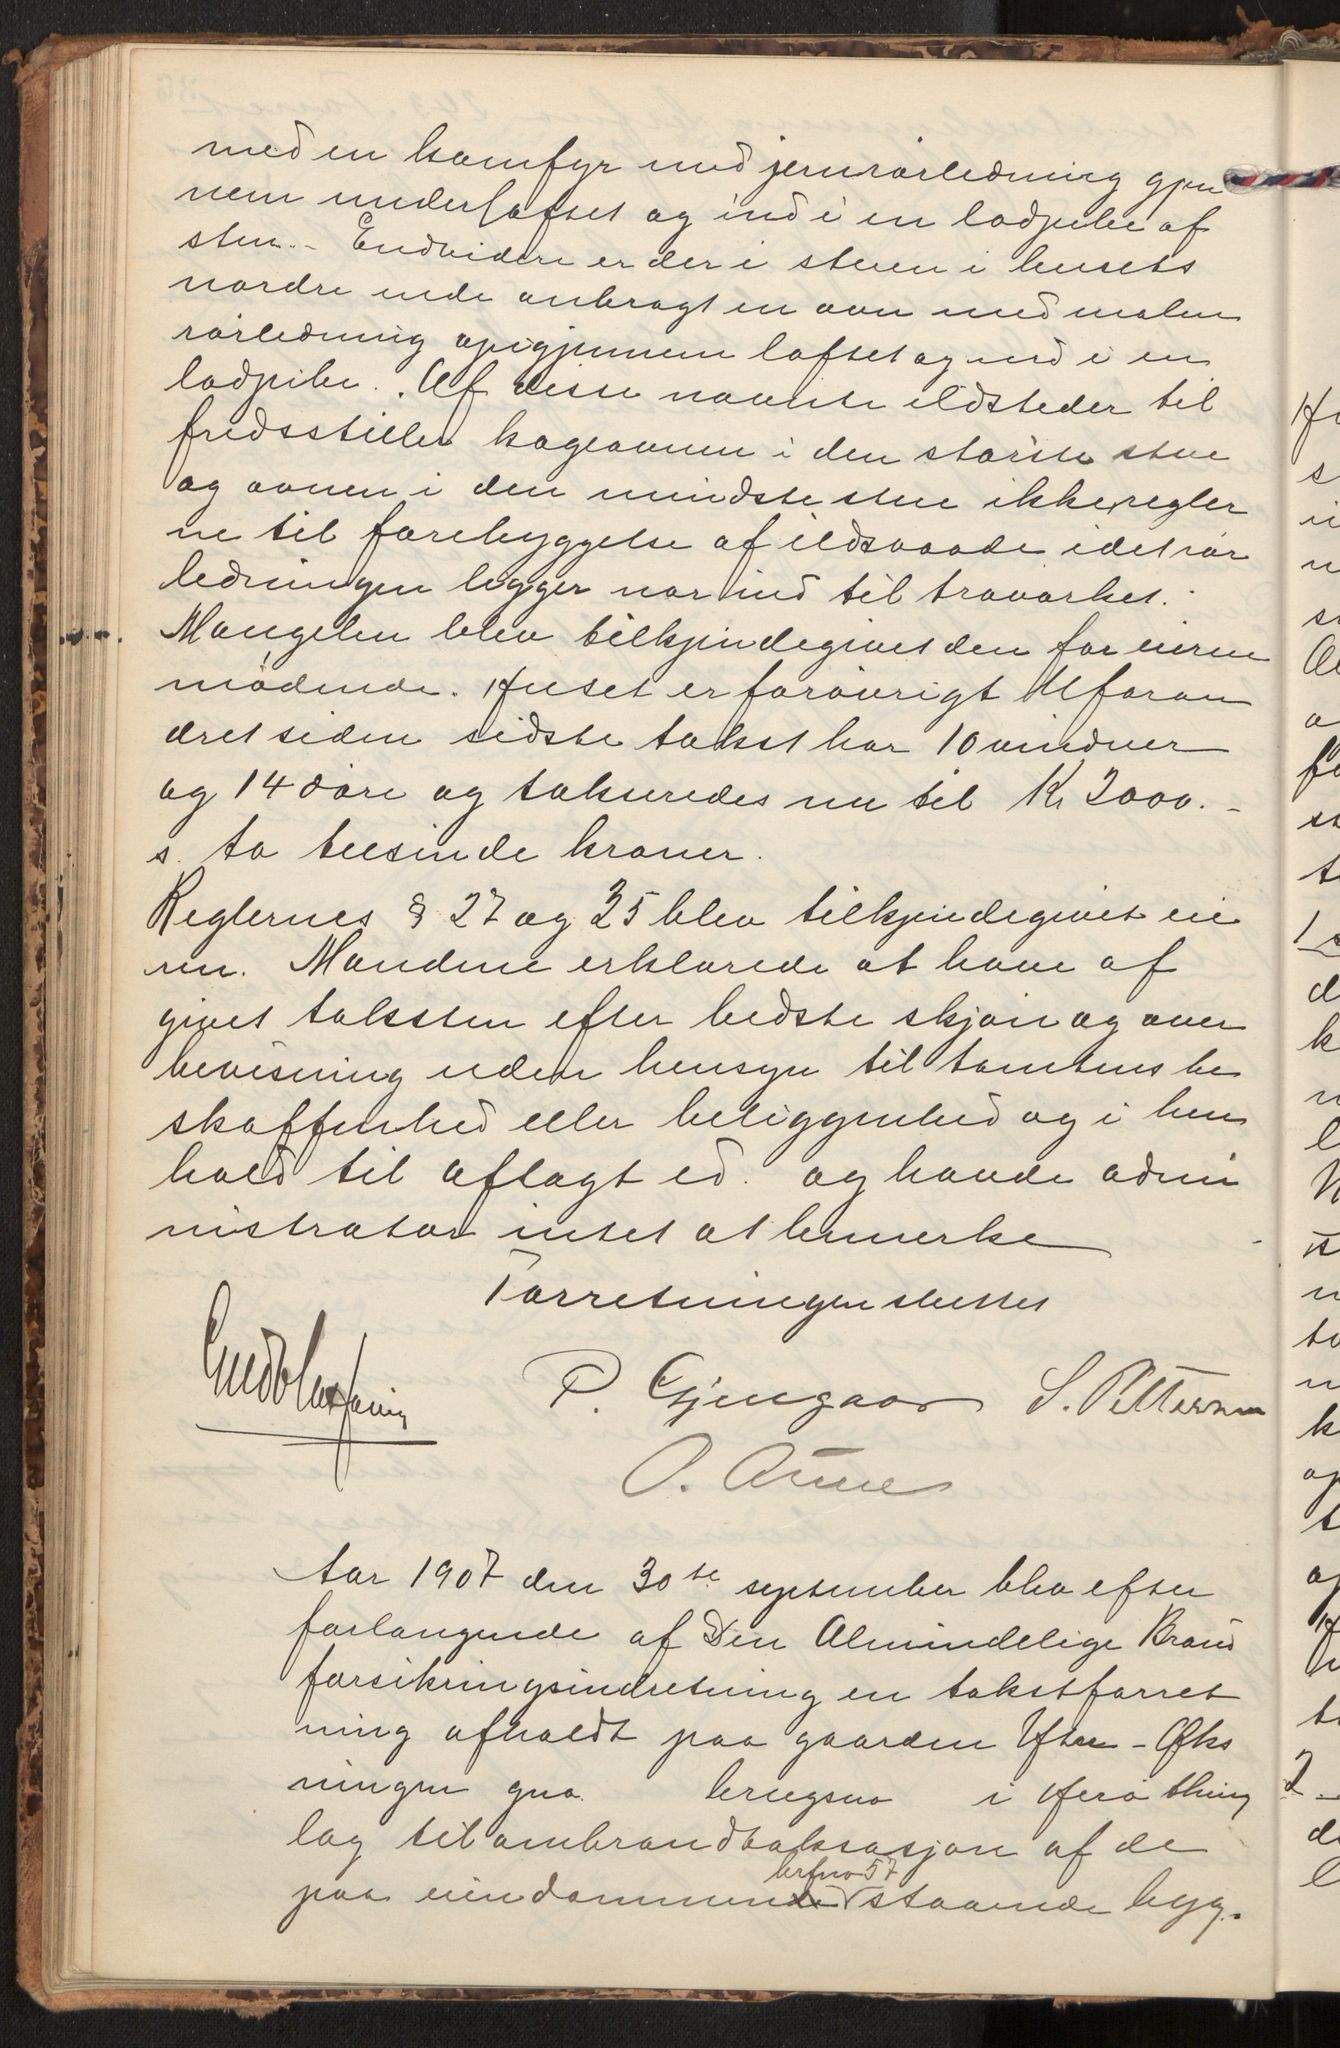 med en komfyr med jernrørledning gjen
nem underloftet og ind i en lodpibe af
sten. - Endvidere er der i stuen i husets
nordre ende anbragt en ovn med malm
rørledning op igjennem loftet og ind i en
lodpibe. Af disse nævnte ildsteder til
fredsstiller kogeovnen i den største stue
og ovnen i den mindste stue ikke regler
ne til forebyggelse af ildsvaade idet rør
ledningen ligger nær ind til træværket.
Mangelen blev tilkjendegivet den for eieren
mødende. Huset er forøvrigt uforan
dret siden sidste takst har 10 vinduer
og 14 døre og takseredes nu til Kr 2000. -
s. to tusinde kroner.
Reglernes § 27 og 35 blev tilkjendegivet eie
ren. Mændene erklærede at have af
givet taksten efter bedste skjøn og over
bevisning uden hensyn til tomtens be
skaffenhed eller beliggenhed og i hen
hold til aflagt ed. og havde admi
nistrator intet at bemerke
Forretningen sluttet
P. Gjengaar S. Pettersen
O. Aune
Aar 1907 den 30te september blev efter
forlangende af Den Almindelige Brand
forsikringsindretning en takstforret
ning afholdt paa gaarden Yttre-Øks
ningen gno. brugsno i Herø thing
lag til ombrandtaksasjon af de
brfno 57
paa eiendommen staaende byg.